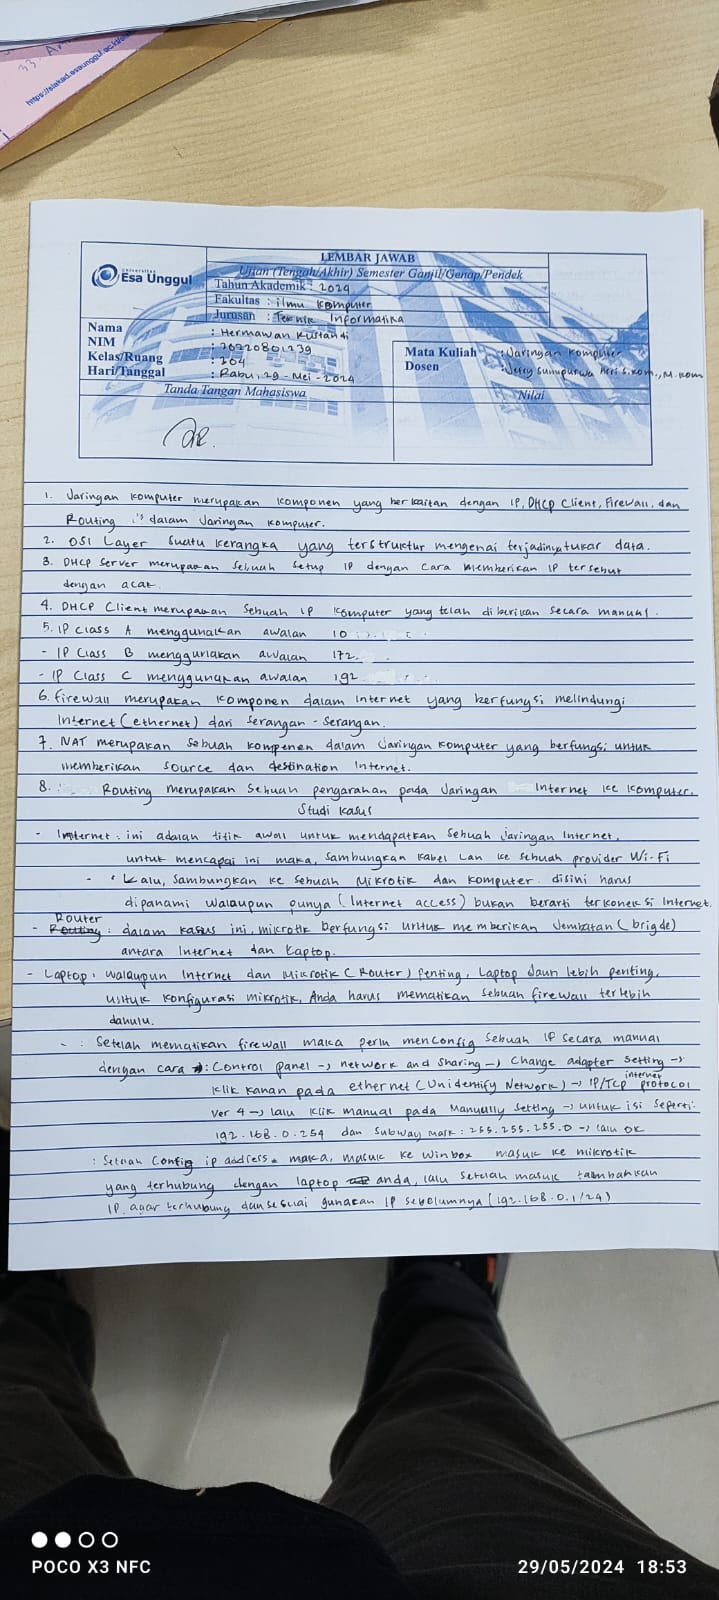 33. A
https://siakad.esaunggul.ac.id/
Universitas
Esa Unggul
LEMBAR JAWAB
Ujian (Tengah/Akhir) Semester Ganjil/Genap/Pendek
Tahun Akademik : 2024
Fakultas : ilmu Komputer
Jurusan : Teknik Informatika
Nama : Hermawan Kustandi
NIM : 20220801239
Kelas/Ruang : 204
Hari/Tanggal : Rabu, 29 - Mei - 2024
Mata Kuliah : Jaringan Komputer
Dosen : Jefry Sunupurwa Asri S.Kom., M.Kom
Tanda Tangan Mahasiswa
Nilai
1. Jaringan Komputer merupakan komponen yang berkaitan dengan IP, DHCP Client, Firewall, dan
Routing dalam Jaringan Komputer.
2. OSI Layer suatu kerangka yang terstruktur mengenai terjadinya tukar data.
3. DHCP Server merupakan sebuah setup IP dengan cara memberikan IP tersebut
dengan acak.
4. DHCP Client merupakan sebuah IP Komputer yang telah diberikan secara manual.
5. IP Class A menggunakan awalan 10
- IP Class B menggunakan awalan 172.
- IP Class C menggunakan awalan 192
6. Firewall merupakan komponen dalam Internet yang berfungsi melindungi
Internet (ethernet) dari serangan - serangan.
7. NAT merupakan sebuah komponen dalam Jaringan Komputer yang berfungsi untuk
memberikan source dan destination Internet.
8. Routing merupakan sebuah pengarahan pada Jaringan Internet ke Komputer.
Studi Kasus
- Internet : ini adalah titik awal untuk mendapatkan sebuah Jaringan Internet.
untuk mencapai ini maka, sambungkan kabel Lan ke sebuah provider Wi-Fi
- Lalu, sambungkan ke sebuah Mikrotik dan komputer. disini harus
dipahami walaupun punya (Internet access) bukan berarti terkoneksi Internet.
- Router : dalam kasus ini, mikrotik berfungsi untuk memberikan Jembatan (brigde)
antara Internet dan Laptop.
- Laptop : walaupun Internet dan Mikrotik (Router) Penting, Laptop Jauh lebih penting,
untuk konfigurasi mikrotik, Anda harus mematikan sebuah firewall terlebih
dahulu.
- : Setelah mematikan firewall maka perlu menconfig sebuah IP secara manual
dengan cara : Control panel -> network and sharing -> Change adapter setting ->
klik kanan pada ethernet (Unidentify Network) -> IP/TCP internet protocol
ver 4 -> lalu klik manual pada Manually setting -> untuk isi seperti:
192.168.0.254 dan Subway mask : 255.255.255.0 -> lalu OK
: Setelah Config ip address. maka, masuk ke winbox masuk ke mikrotik
yang terhubung dengan laptop anda, lalu setelah masuk tambahkan
IP. agar terhubung dan sesuai gunakan IP sebelumnya (192.168.0.1/24)
POCO X3 NFC
29/05/2024 18:53